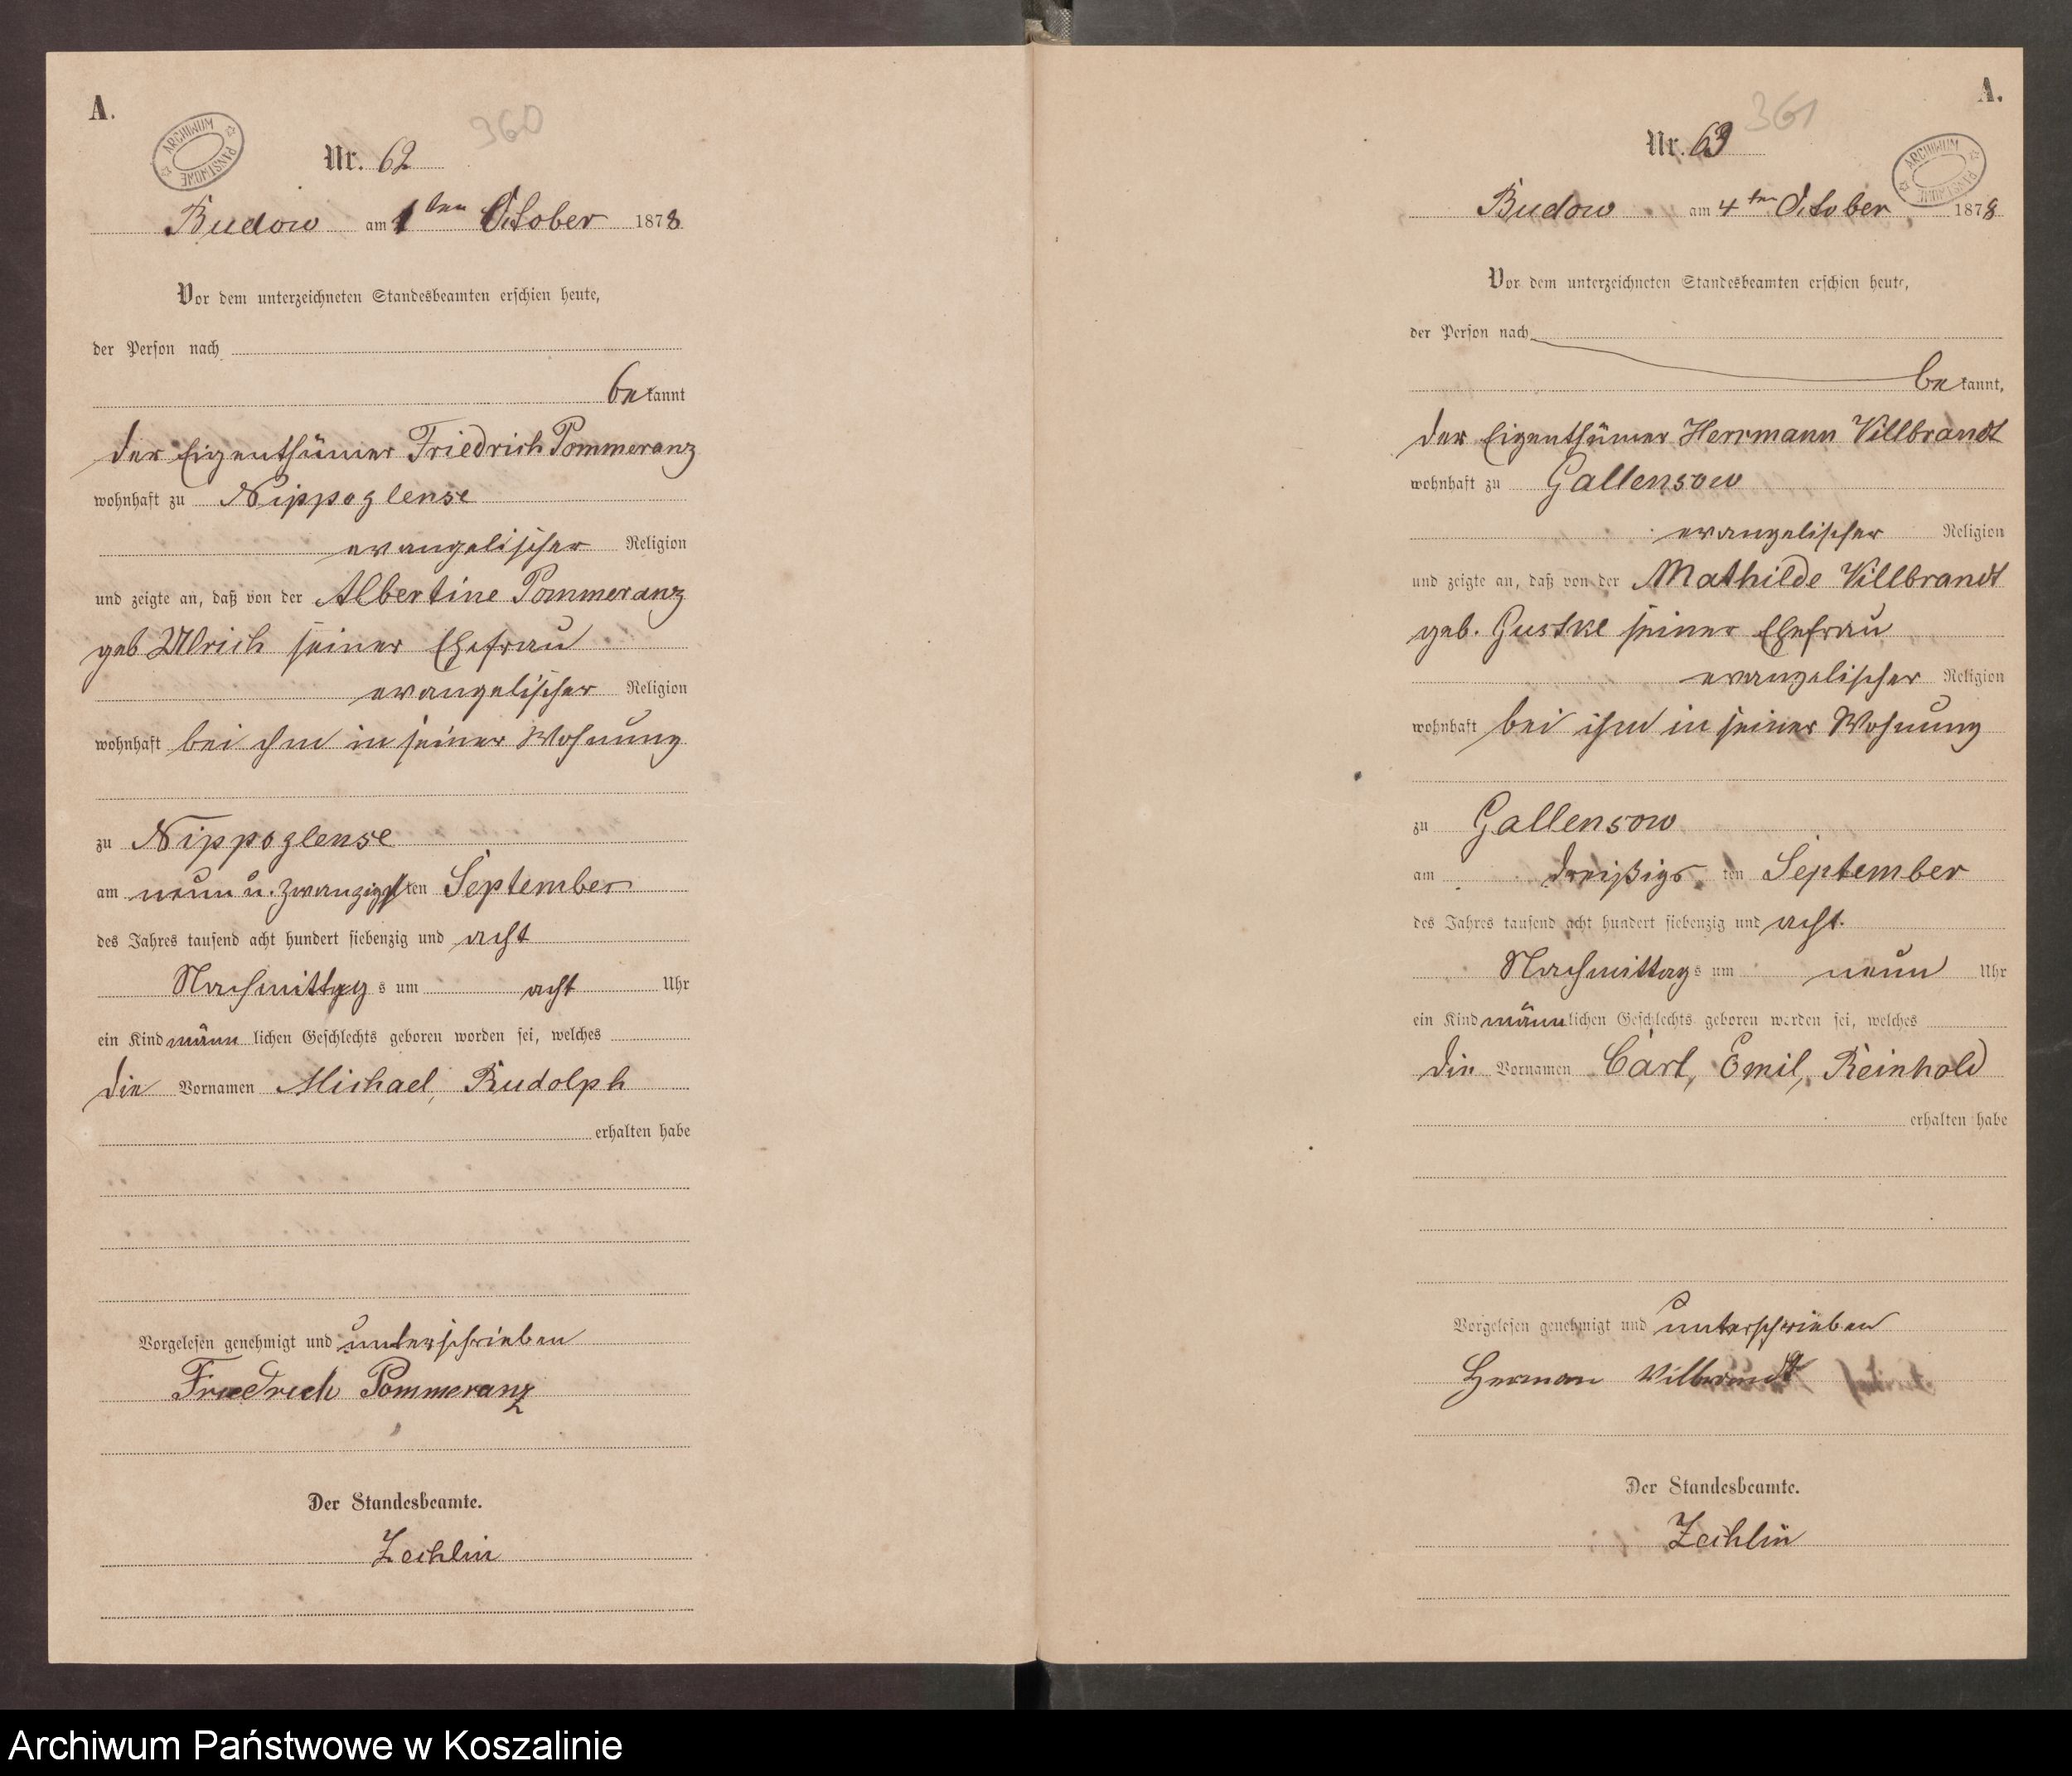 A.
ARCHIWUM PAŃSTWOWE
360
Nr. 62
Budow am 1ten October 1878
Vor dem unterzeichneten Standesbeamten erschien heute,
der Person nach
bekannt
der Eigenthümer Friedrich Pommeranz
wohnhaft zu Nippoglense
evangelischer Religion
und zeigte an, daß von der Albertine Pommeranz
geb Ulrich seiner Ehefrau
evangelischer Religion
wohnhaft bei ihm in seiner Wohnung
zu Nippoglense
am neun u. zwanzigsten September
des Jahres tausend acht hundert siebenzig und acht
Nachmittags um acht Uhr
ein Kind männlichen Geschlechts geboren worden sei, welches
die Vornamen Michael, Rudolph
erhalten habe
Vorgelesen genehmigt und unterschrieben
Friedrich Pommeranz
Der Standesbeamte.
Zechlin
A.
ARCHIWUM PAŃSTWOWE
361
Nr. 63
Budow am 4ten October 1878
Vor dem unterzeichneten Standesbeamten erschien heute,
der Person nach
bekannt,
der Eigenthümer Herrmann Villbrandt
wohnhaft zu Gallensow
evangelischer Religion
und zeigte an, daß von der Mathilde Villbrandt
geb. Guske seiner Ehefrau
evangelischer Religion
wohnhaft bei ihm in seiner Wohnung
zu Gallensow
am dreißigsten September
des Jahres tausend acht hundert siebenzig und acht.
Nachmittags um neun Uhr
ein Kind männlichen Geschlechts geboren worden sei, welches
die Vornamen Carl, Emil, Reinhold
erhalten habe
Vorgelesen genehmigt und unterschrieben
Herman Villbrandt
Der Standesbeamte.
Zechlin
Archiwum Państwowe w Koszalinie